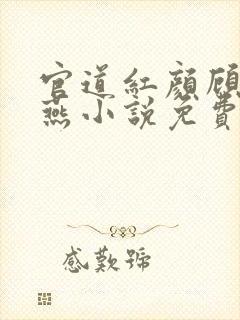 官道紅顏顾
燕小說免費
感歎號